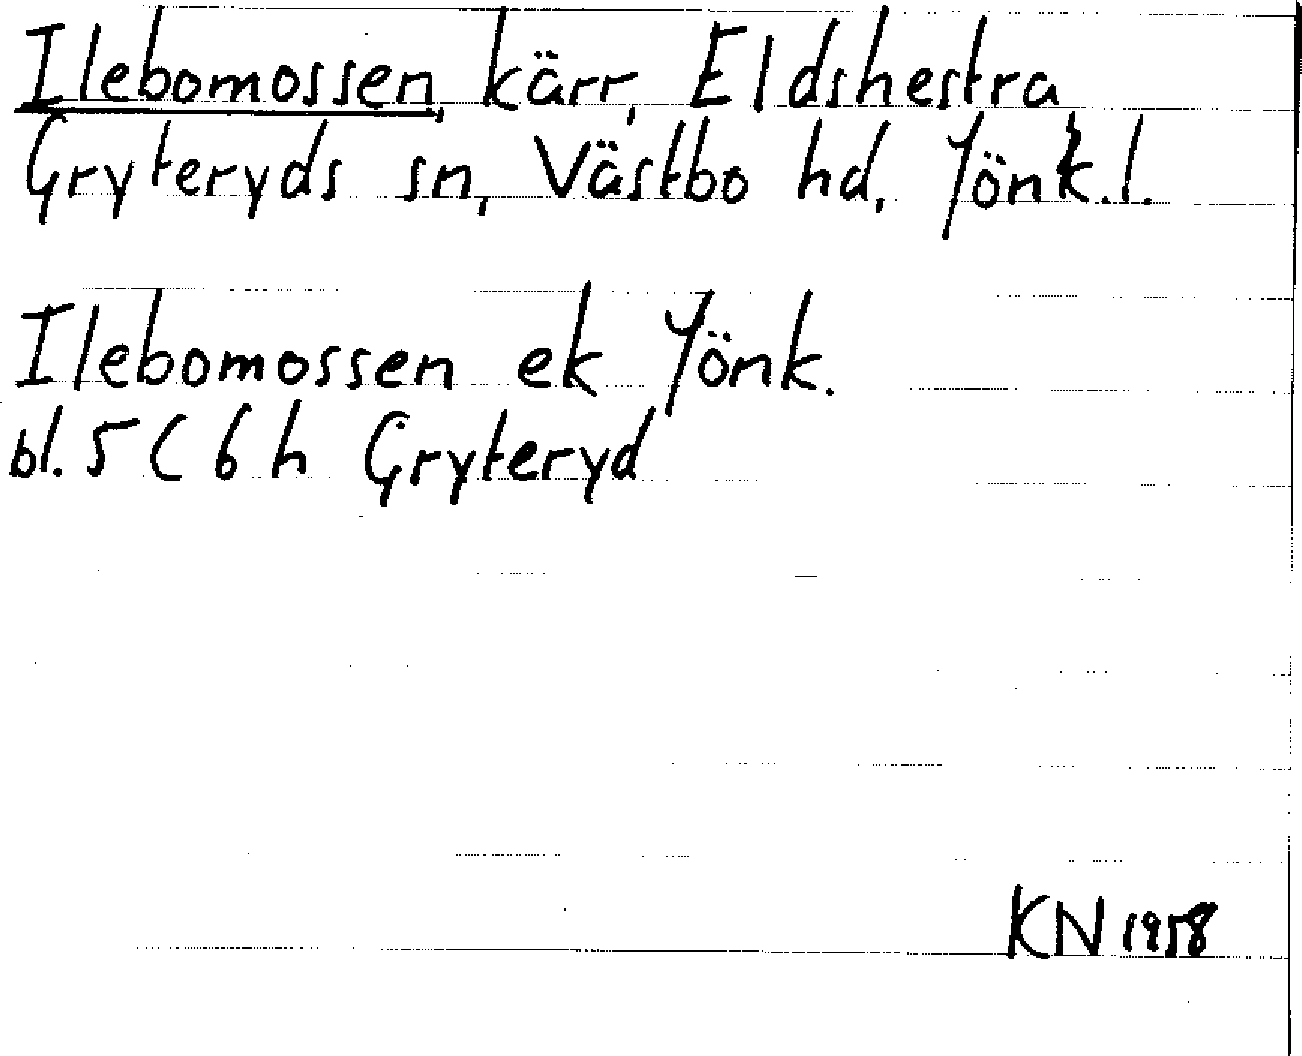 Ilebomossen, kärr, Eldshestra
Gryteryds sn, Västbo hd, Jönk.l.
Ilebomossen ek Jönk.
bl. 5 C 6 h Gryteryd
KN 1958